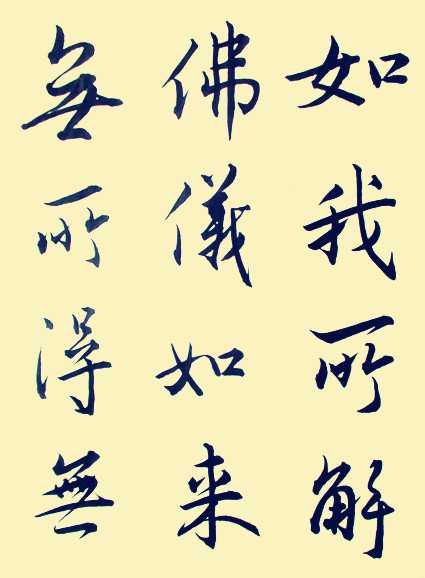 如我所解
佛儀如来
無所得無